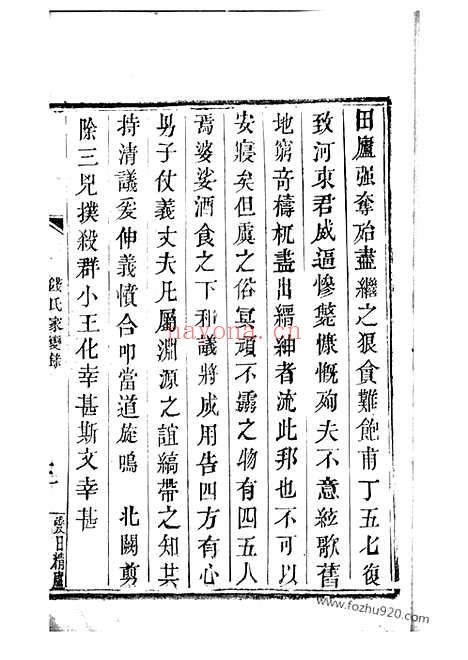 田廬强奪殆盡繼之狠貪難飽甫丁五七復
致河東君威逼慘斃慷慨殉夫不意絃歌舊
地窮奇檮杌盡出縉紳者流此邦也不可以
安寢矣但虞之俗冥頑不靈之物有四五人
焉婆娑酒食之下和議將成用告四方有心
男子仗義丈夫凡屬淵源之誼縞帶之知共
持清議爰伸義憤合叩當道旋鳴 北闕剪
除三兇撲殺群小王化幸甚斯文幸甚
錢氏家變錄
愛日精廬
haoyaoxi.com
www.fozhu920.com